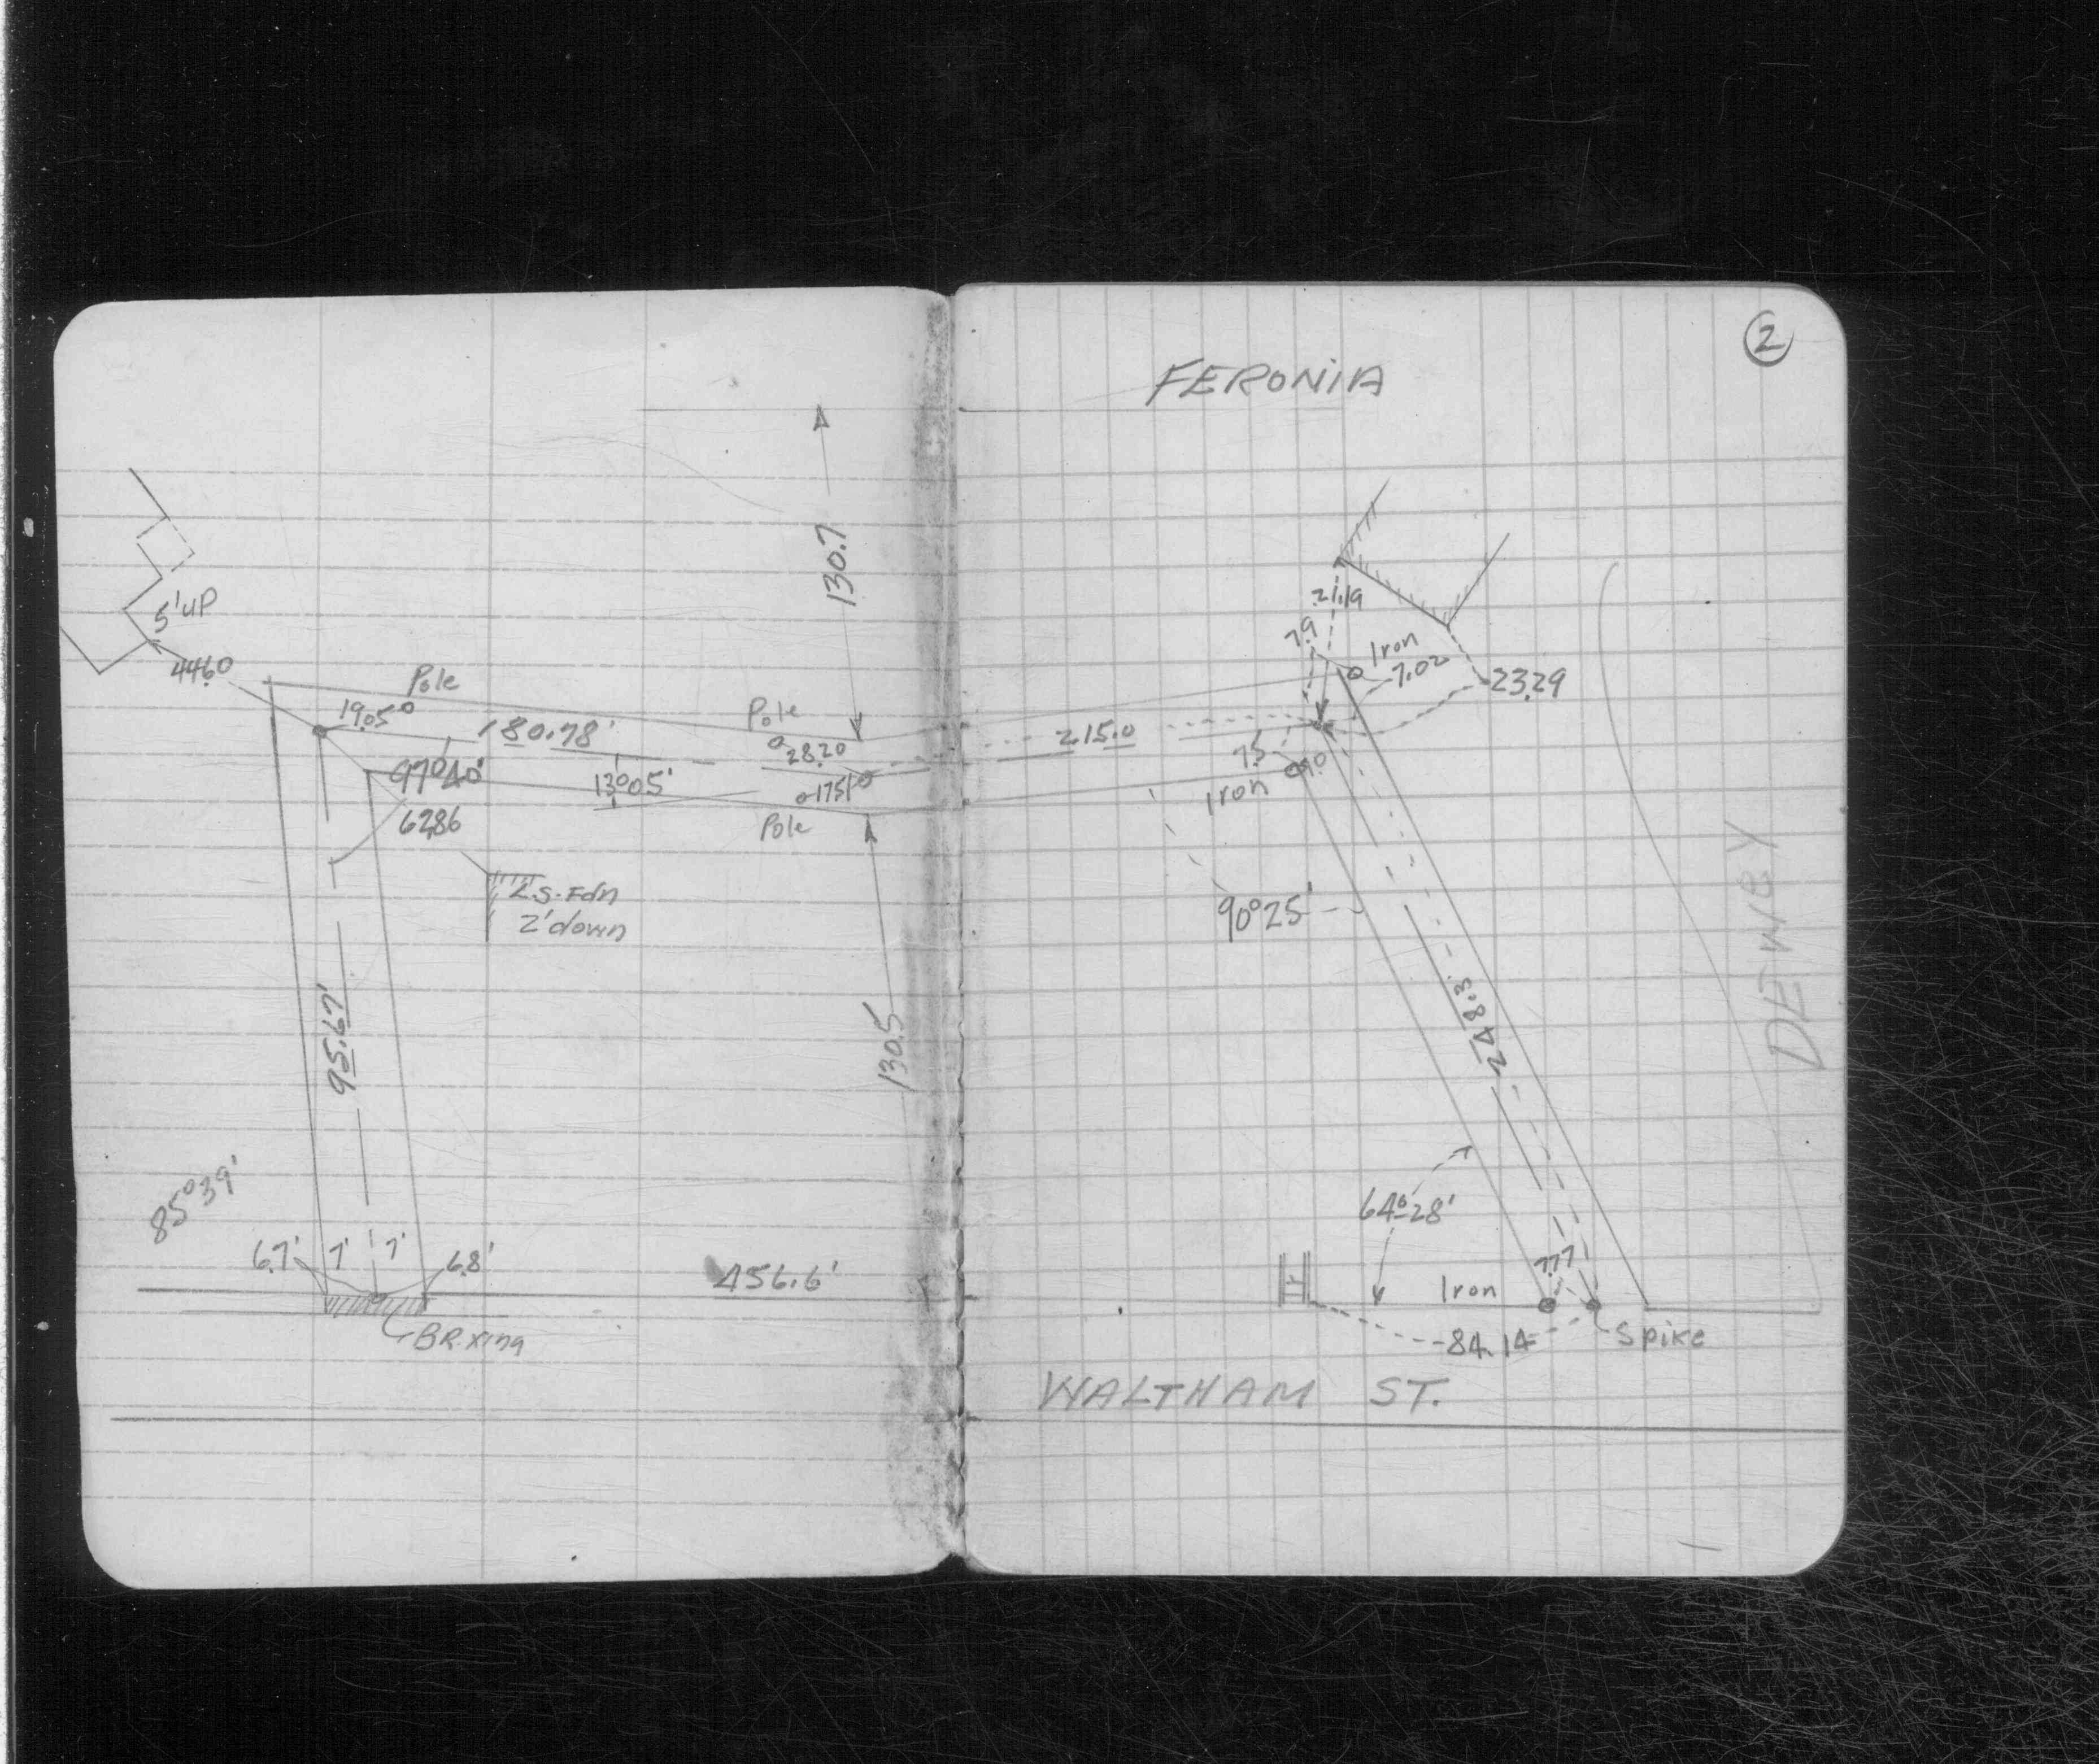 2
FERONIA
130.7
5'UP
44.60
Pole
19.05
180.78'
Pole
28.20
97°40'
13°05'
17.51
62.86
Pole
L.S. Fdn
2' down
95.67'
130.5
85°39'
6.7'
7'
7'
6.8'
456.6'
BR. xing
21.19
7.9
Iron
7.02
23.29
215.0
7.5
Iron
90°25'
248.3
DEWEY
64°28'
7.77
Iron
84.14
Spike
WALTHAM ST.